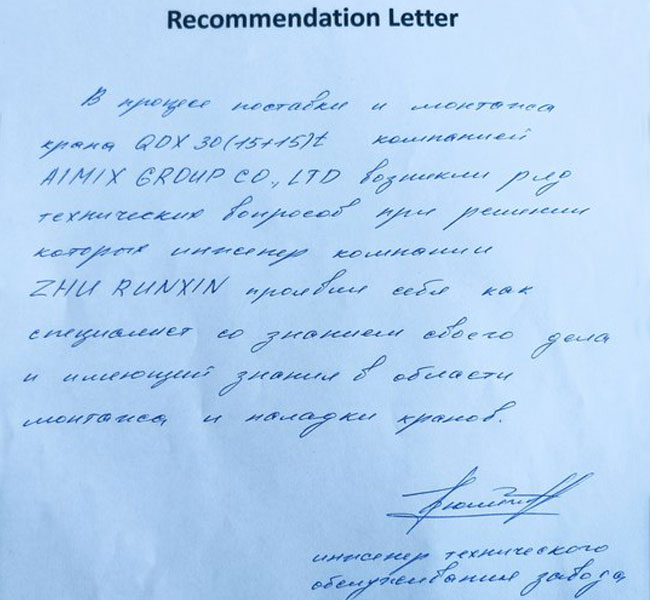 Recommendation Letter
В процессе поставки и монтажа
крана QDX 30(15+15)t компанией
AIMIX GROUP CO., LTD возникли ряд
технических вопросов при решении
которых инженер компании
ZHU RUNXIN проявил себя как
специалист со знанием своего дела
и имеющий знания в области
монтажа и наладки кранов.
инженер технического
обслуживания завода